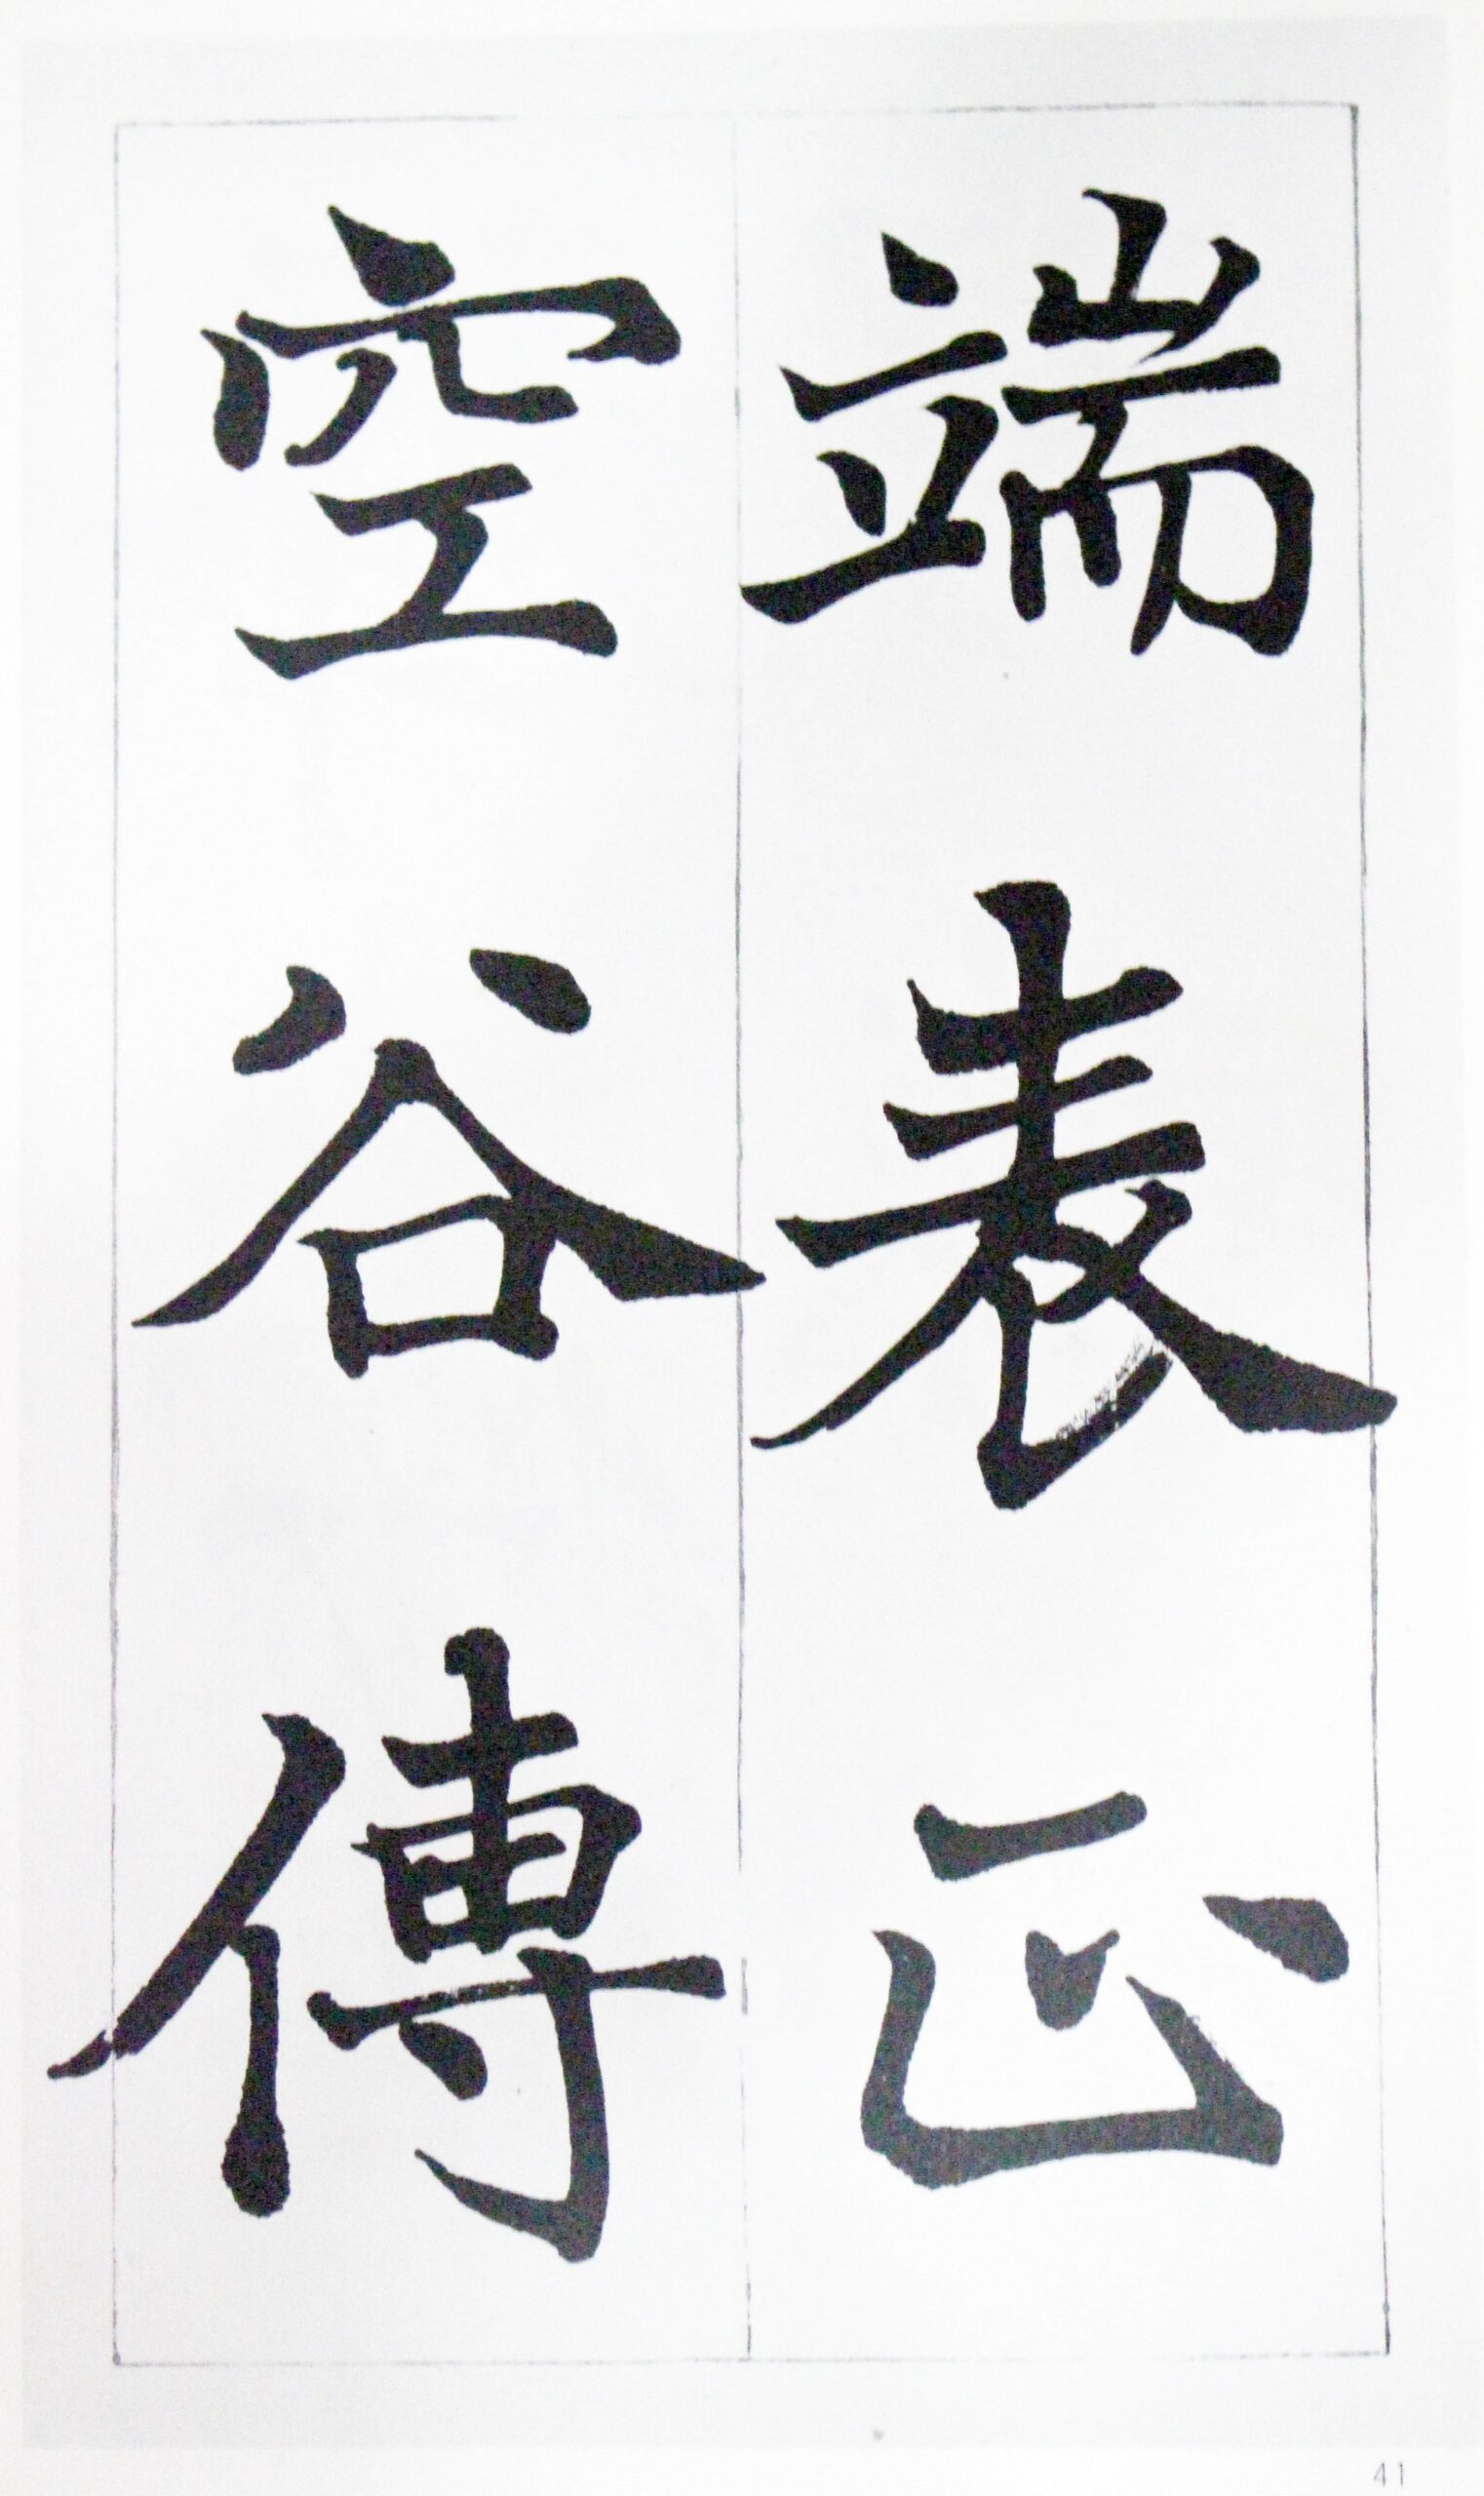 端表正
空谷傳
41